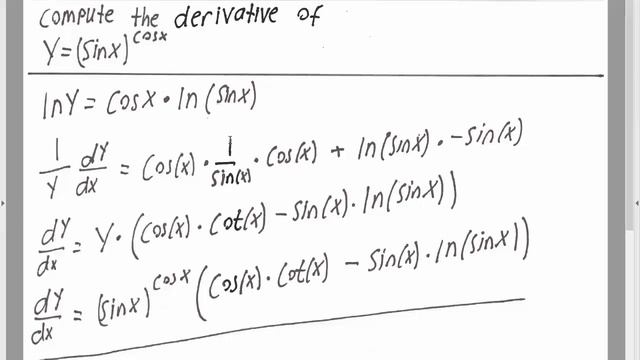 Compute the derivative of
Y = (sinx)^cosx
lnY = cosx · ln(sinx)
1/Y dY/dx = cos(x) · 1/sin(x) · cos(x) + ln(sinx) · -sin(x)
dY/dx = Y · (cos(x) · cot(x) - sin(x) · ln(sinx))
dY/dx = (sinx)^cosx (cos(x) · cot(x) - sin(x) · ln(sinx))